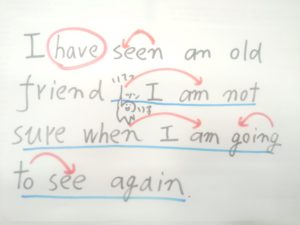 I have seen an old
friend I am not
sure when I am going
to see again.